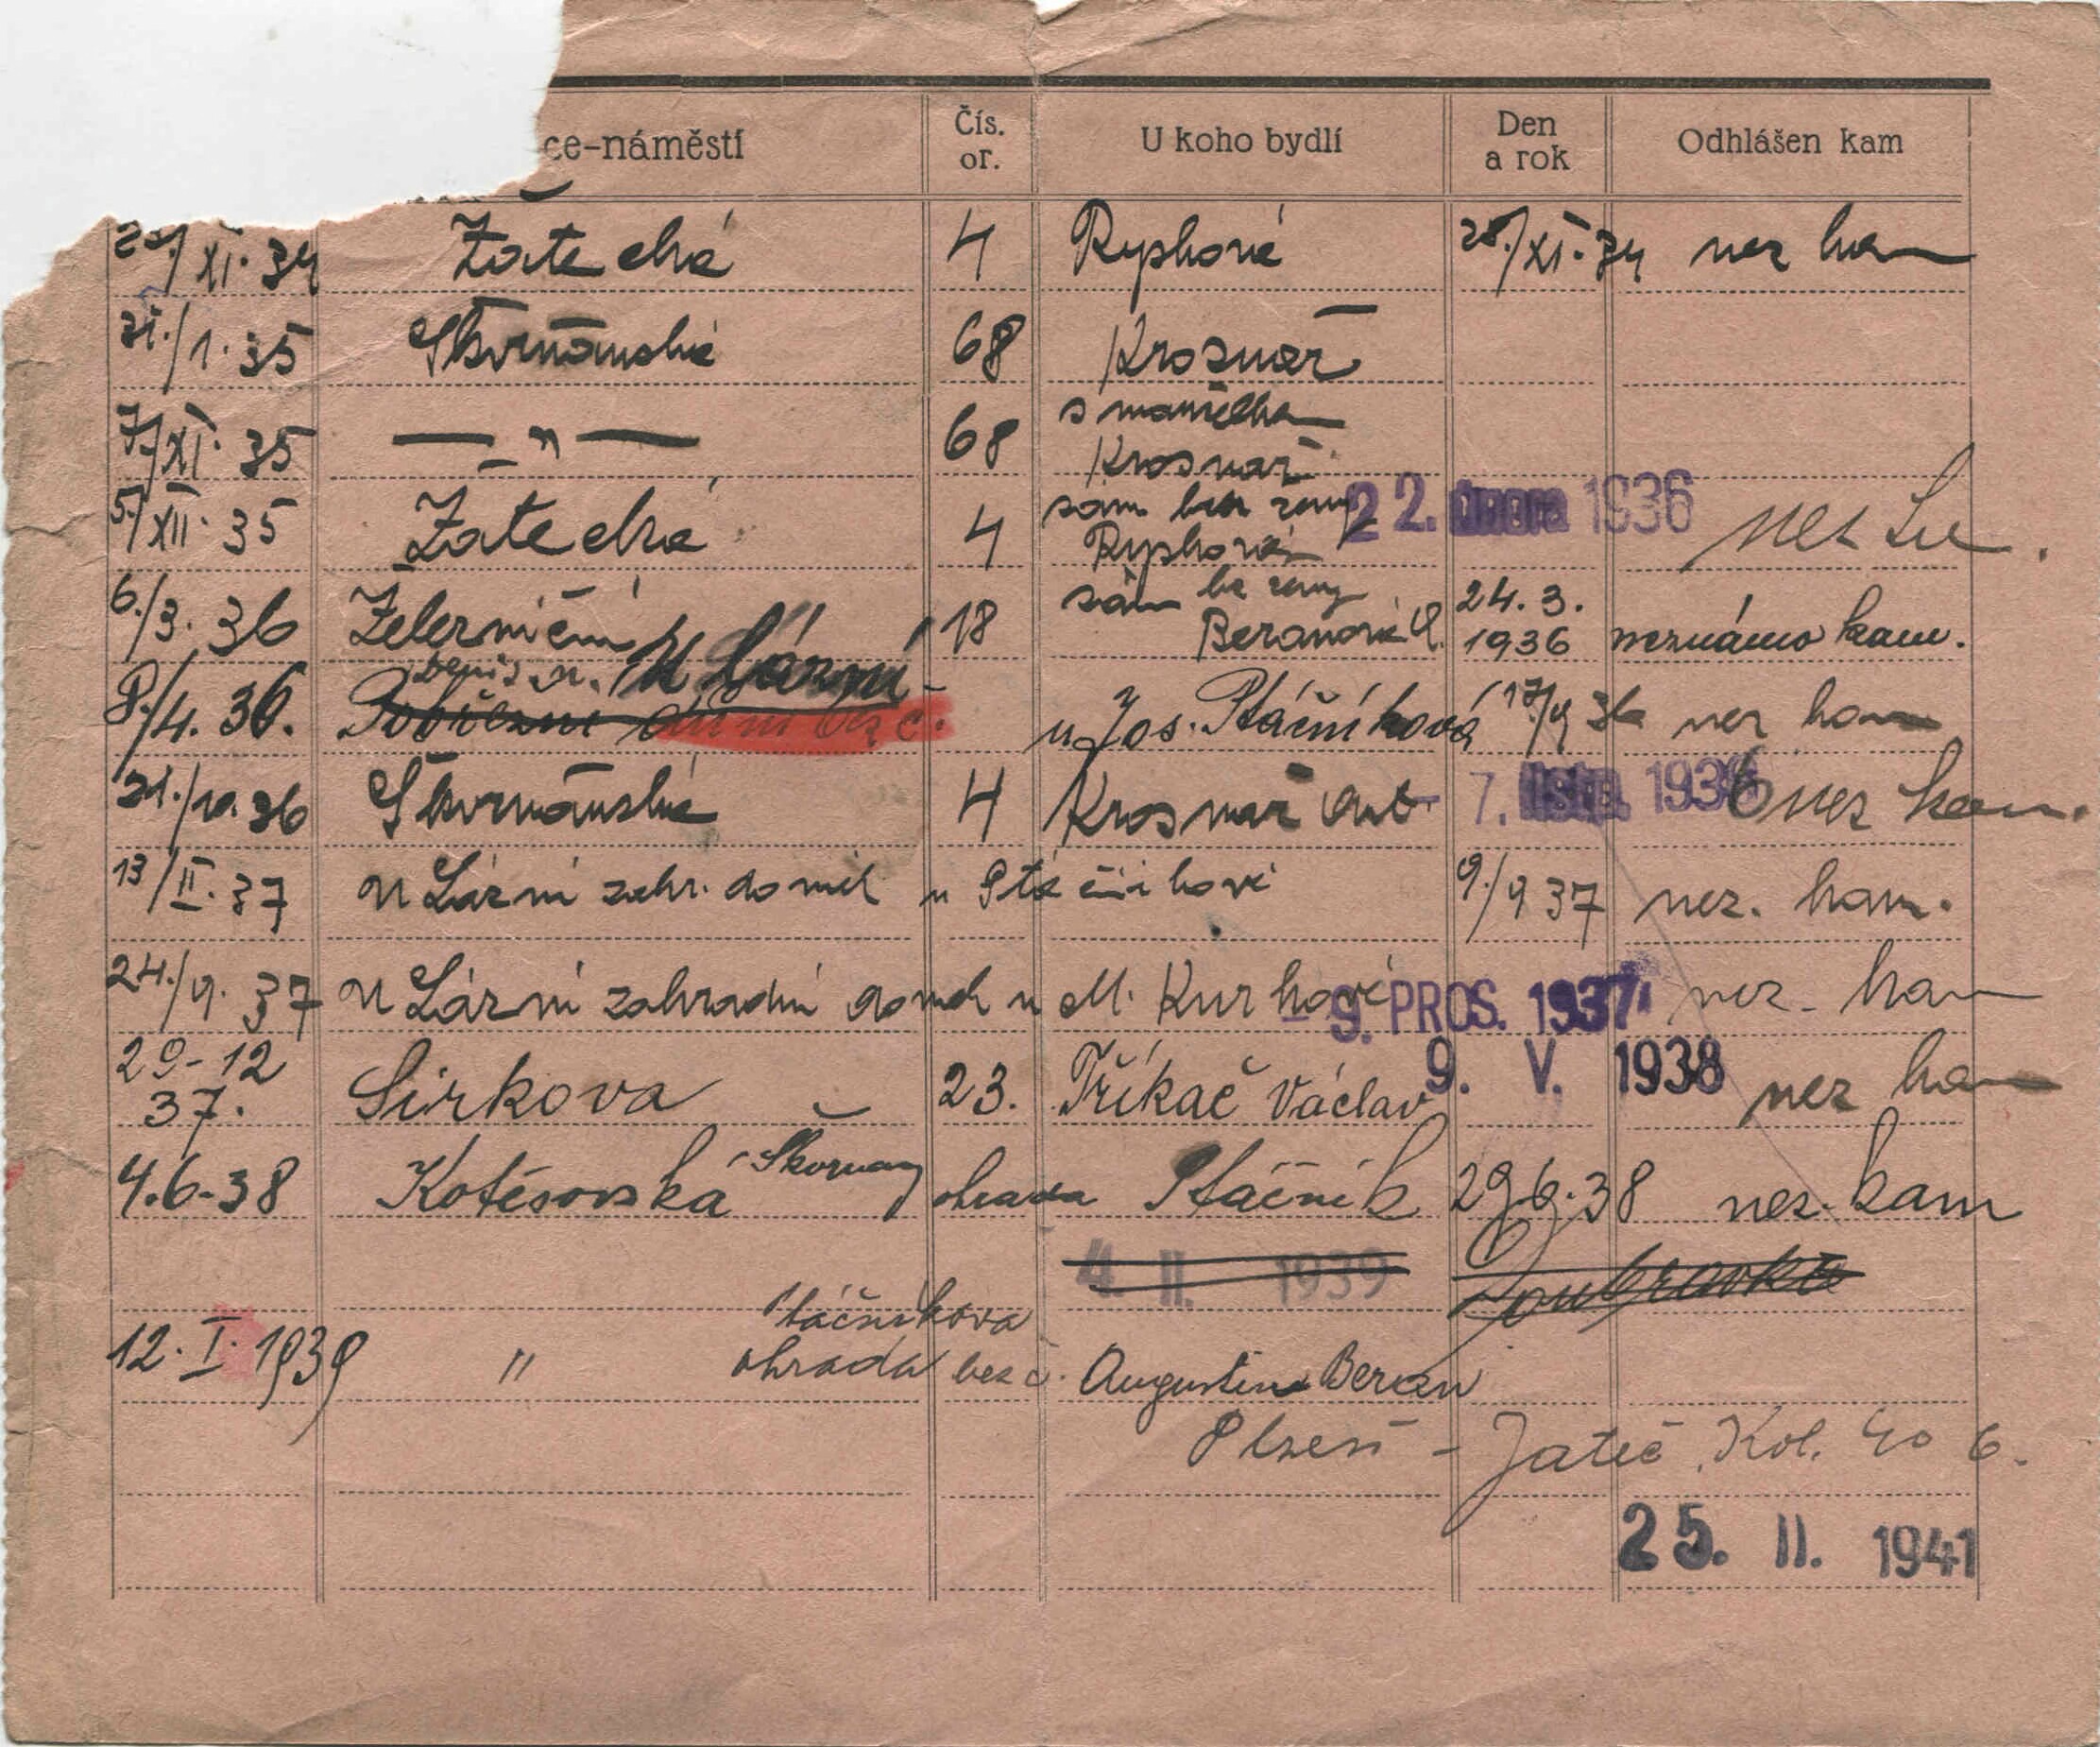 ce-náměstí Čís. or. U koho bydlí Den a rok Odhlášen kam
XI. 34 Žatecká 4 Rypková 28./XI. 34 nez kam
31./1. 35 Škvrňanská 68 Krosnář
7/XI. 35 — „ — 68 s manželkou Krosnář
5./XII. 35 Žatecká 4 sám bez ženy Rypková 22. února 1936 nez
6./3. 36 Železniční 18 sám bez ženy Beranová 24. 3. 1936 neznámo kam.
U Lázní
8./4. 36. Pobřežní bez č. u Jos. Ptáčníková 17/9 36 nez kam
21./10. 36 Škvrňanská 4 Krosnař Ant. 7. listop. 1936 nez kam.
13/II. 37 U Lázní zahr. domek u Ptáčníkové 9./9 37 nez. kam.
24./9. 37 U Lázní zahradní domek u M. Kurkové 9. PROS. 1937 nez. kam
29-12 37. Sirkova 23. Tříkač Václav 9. V. 1938 nez kam
4.6-38 Kotěsovská Škvrňany ohrada Ptáčník 29.6.38 nez. kam
4 II. 1939 Doubravka
Ptáčníkova
12. I. 1939 " ohrada bez č. Augustin Beran
Plzeň - Jateč. Kol. 40 6.
25. II. 1941